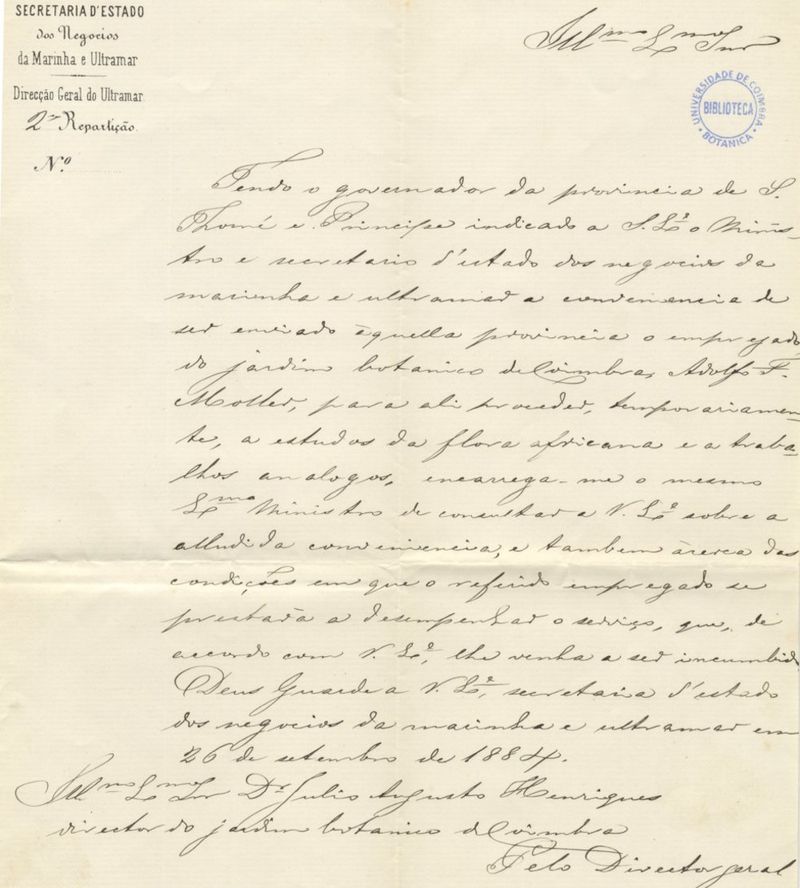 SECRETARIA D'ESTADO
dos Negocios
da Marinha e Ultramar
Direcção Geral do Ultramar
2ª Repartição.
N.º
Illmo Exmo Snr
UNIVERSIDADE DE COIMBRA
BIBLIOTECA
BOTANICA
Tendo o governador da provincia de S.
Thomé e Principe indicado a S. Exª o Minis-
tro e secretario d'estado dos negocios da
marinha e ultramar a conveniencia de
ser enviado áquella provincia o empregado
do jardim botanico de Coimbra, Adolfo F.
Moller, para ali proceder, temporariamen-
te, a estudos da flora africana e a traba-
lhos analogos, encarrega-me o mesmo
Exmo Ministro de consultar a V. Exª sobre a
alludida conveniencia, e tambem ácerca das
condições em que o referido empregado se
prestará a desempenhar o serviço, que, de
accordo com V. Exª, lhe venha a ser incumbido
Deus Guarde a V. Exª, secretaria d'estado
dos negocios da marinha e ultramar em
26 de setembro de 1884.
Illmo Exmo Snr Dr Julio Augusto Henriques
director do jardim botanico de Coimbra
Pelo Director geral